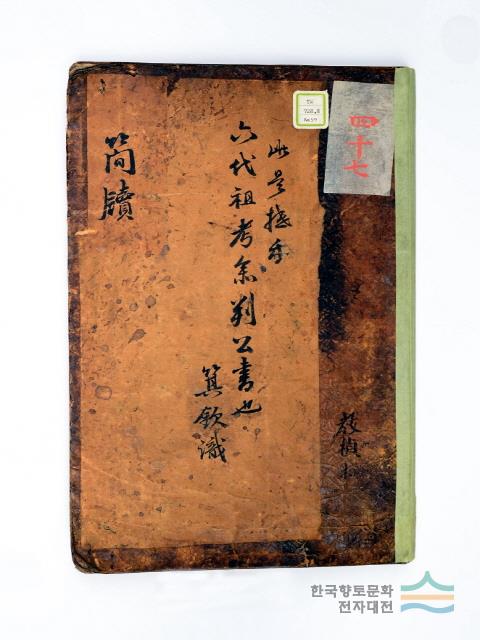 四十七
TK
簡牘
此是
六代祖考參判公書也
箕欽識
한국향토문화
전자대전